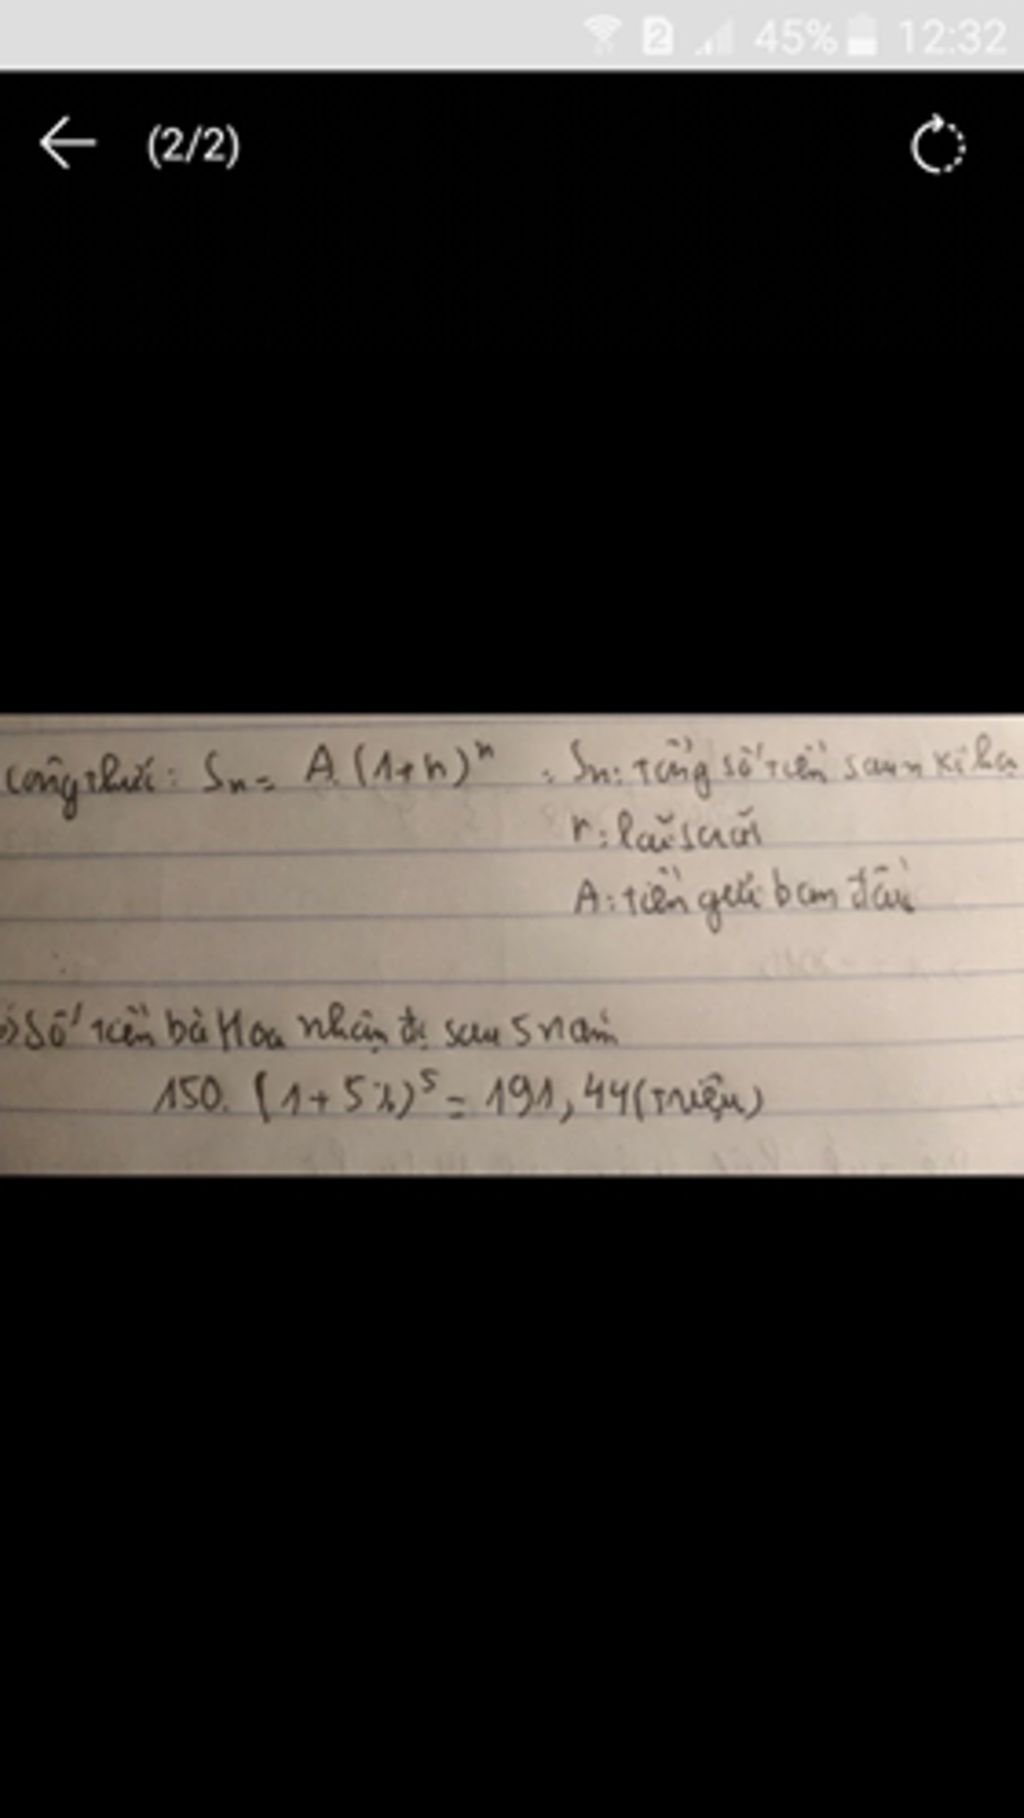 45% 12:32
(2/2)
công thức: Sn = A.(1+r)ⁿ : Sn: tổng số tiền sau n kì hạ
r: lãi suất
A: tiền gửi ban đầu
Số tiền bà Hoa nhận đc sau 5 năm
150. (1+5%)⁵ = 191,44 (triệu)